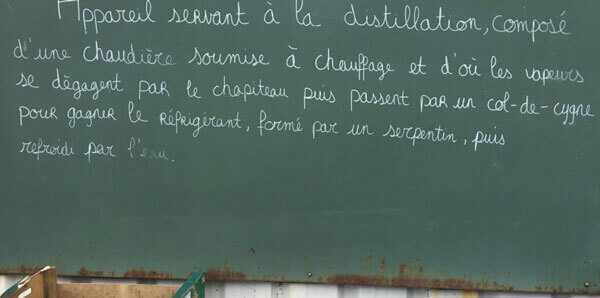 Appareil servant à la distillation, composé
d'une chaudière soumise à chauffage et d'où les vapeurs
se dégagent par le chapiteau puis passent par un col-de-cygne
pour gagner le réfrigérant, formé par un serpentin, puis
refroidi par l'eau.